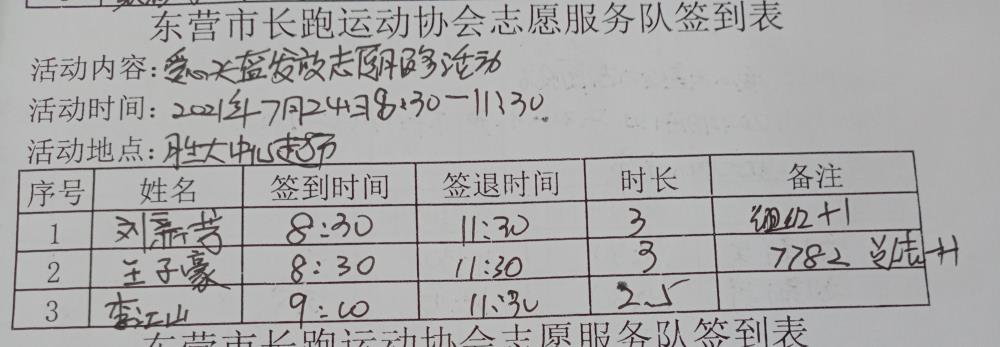 东营市长跑运动协会志愿服务队签到表
活动内容:爱心大篮发放志愿服务活动
活动时间:2021年7月24日8:30-11:30
活动地点:胜大中心
序号 姓名 签到时间 签退时间 时长 备注
1 刘新芳 8:30 11:30 3 组织+1
2 王子豪 8:30 11:30 3 7782 总结+1
3 李江山 9:00 11:30 2.5
东营市长跑运动协会志愿服务队签到表